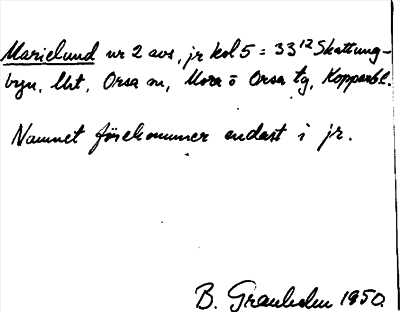 Marielund nr 2 avs, jr kol 5 = 33¹² Skattung-
byn, Uht, Orsa sn, Mora o Orsa tg, Kopparbl.
Namnet förekommer endast i jr.
B. Granholm 1950.